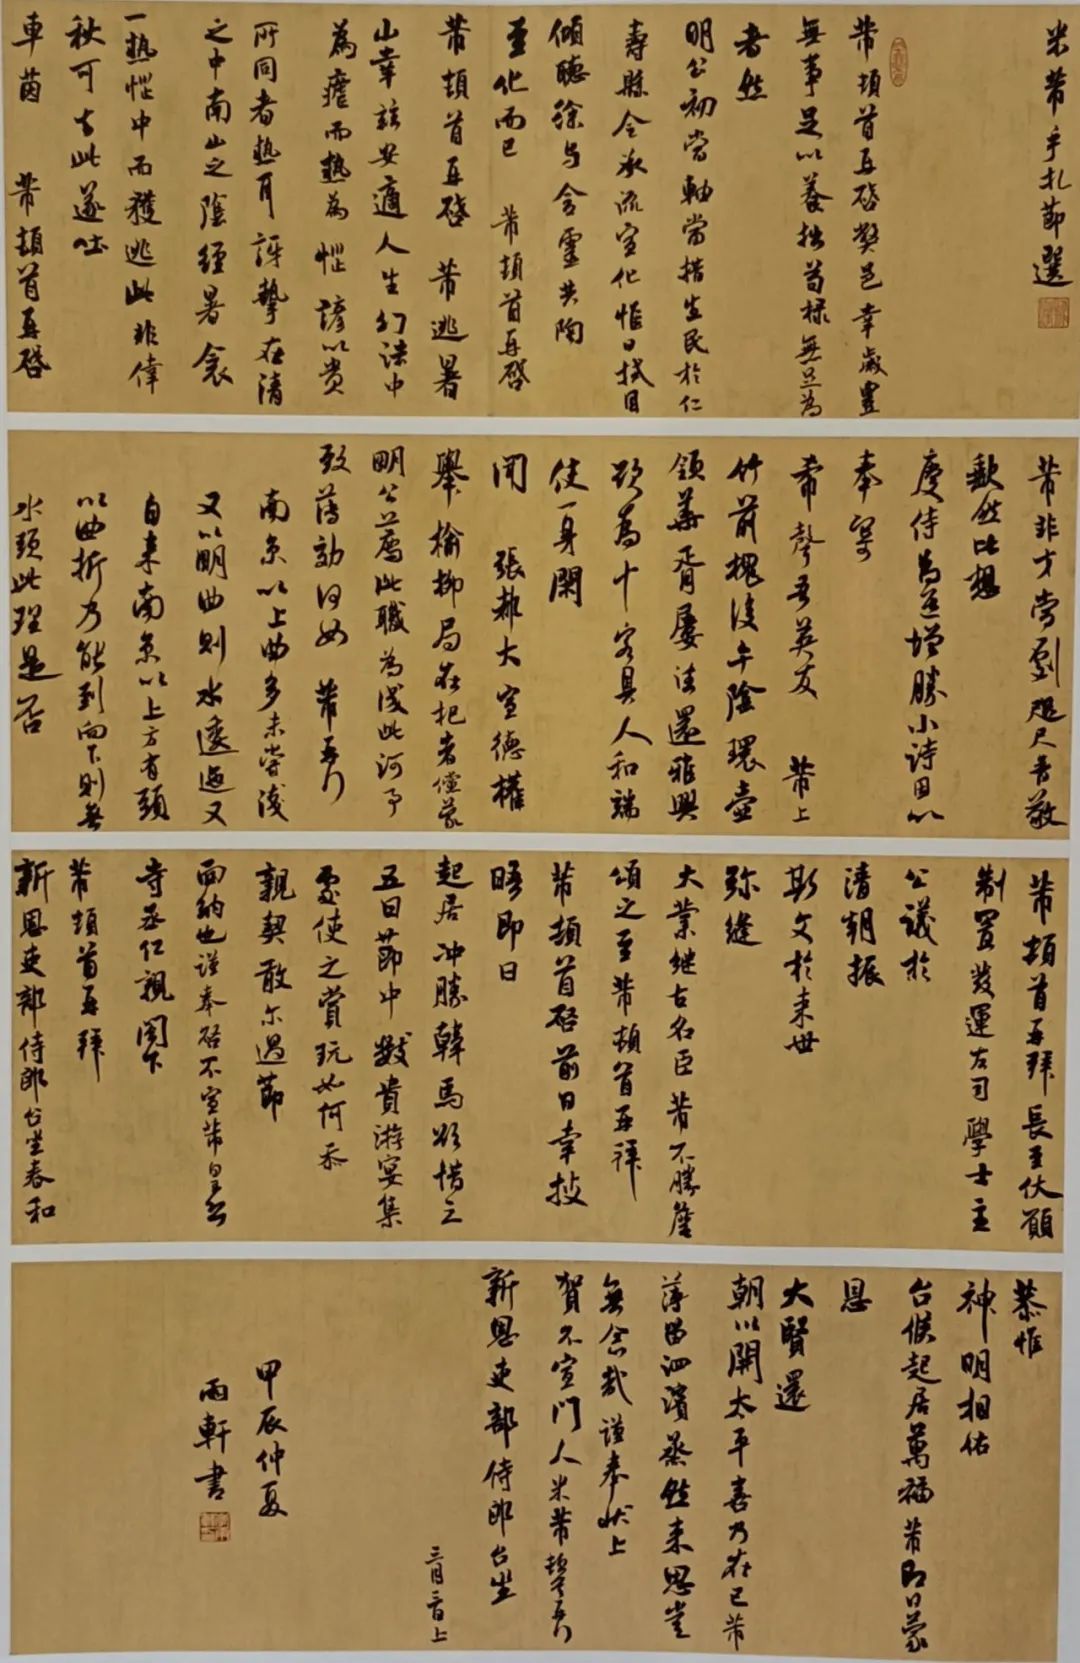 米芾手札節選
芾頓首再啓弊邑幸歲豐
無事足以養拙苟祿無足為
者然
明公初當軸當措生民於仁
壽縣令承流宣化惟日拭目
傾聽徐与含靈共陶
至化而已 芾頓首再啓
芾頓首再啓 芾逃暑
山幸茲安適人生幻法中
為虐而熱為惱諺以貴
所同者熱耳訝挚在清
之中南山之陰經暑衾
一熱惱中而獲逃此非偉
秋可去此遂吐
車茵 芾頓首再啓
芾非才當劇咫尺音敬
歉然比想
慶侍為道增勝小詩因以
奉寄
希聲吾英友 芾上
竹前槐後午陰環壶
領華胥屢法還雅興
欲為十客具人和端
使一身閑
閏 張都大宣德權
舉榆柳局在杞者儻蒙
明公薦此職為淺此河事
致薄効何如 芾再行
南京以上曲多未嘗淺
又以明曲則水逶迤又
自来南京以上方有頭
以曲折乃能到向下則無
水頭此理是否
芾頓首再拜長至伏願
制置發運左司學士主
公議於
清朝振
斯文於来世
弥縫
大業继古名臣芾不勝詹
頌之至芾頓首再拝
芾頓首啓前日幸披
晤即日
起居冲勝韓馬欲借之
五日節中數貴游宴集
要使之賞玩如何忝
親契敢尔過節
面納也謹奉啓不宣芾皇恐
寺丞仁親閣下
芾頓首再拜
新恩吏部侍郎台坐春和
恭惟
神明相佑
台候起居萬福芾即日蒙
恩
大賢還
朝以開太平喜乃在已芾
薄留泗濱烝然来思堂
無念哉謹奉状上
賀不宣門人米芾頓首再行
新恩吏部侍郎台坐
三月一日上
甲辰仲夏
雨軒書